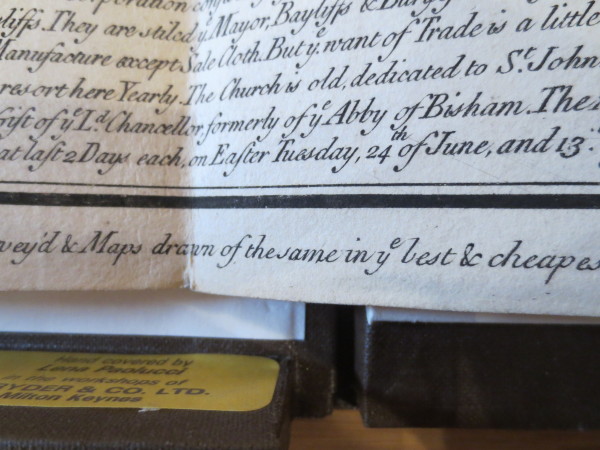 liffs. They are stiled yͤ Mayor, Bayliffs & Burg
Manufacture except Sale Cloth. But yͤ want of Trade is a little
resort here Yearly. The Church is old, dedicated to Sͭ John
Gift of yͤ Lͩ Chancellor, formerly of yͤ Abby of Bisham. The
at last 2 Days each, on Easter Tuesday, 24th of June, and 13.
vey'd & Maps drawn of the same in yͤ best & cheapes
Hand covered by
Lena Paolucci
in the workshops of
RYDER & CO. LTD.
Milton Keynes